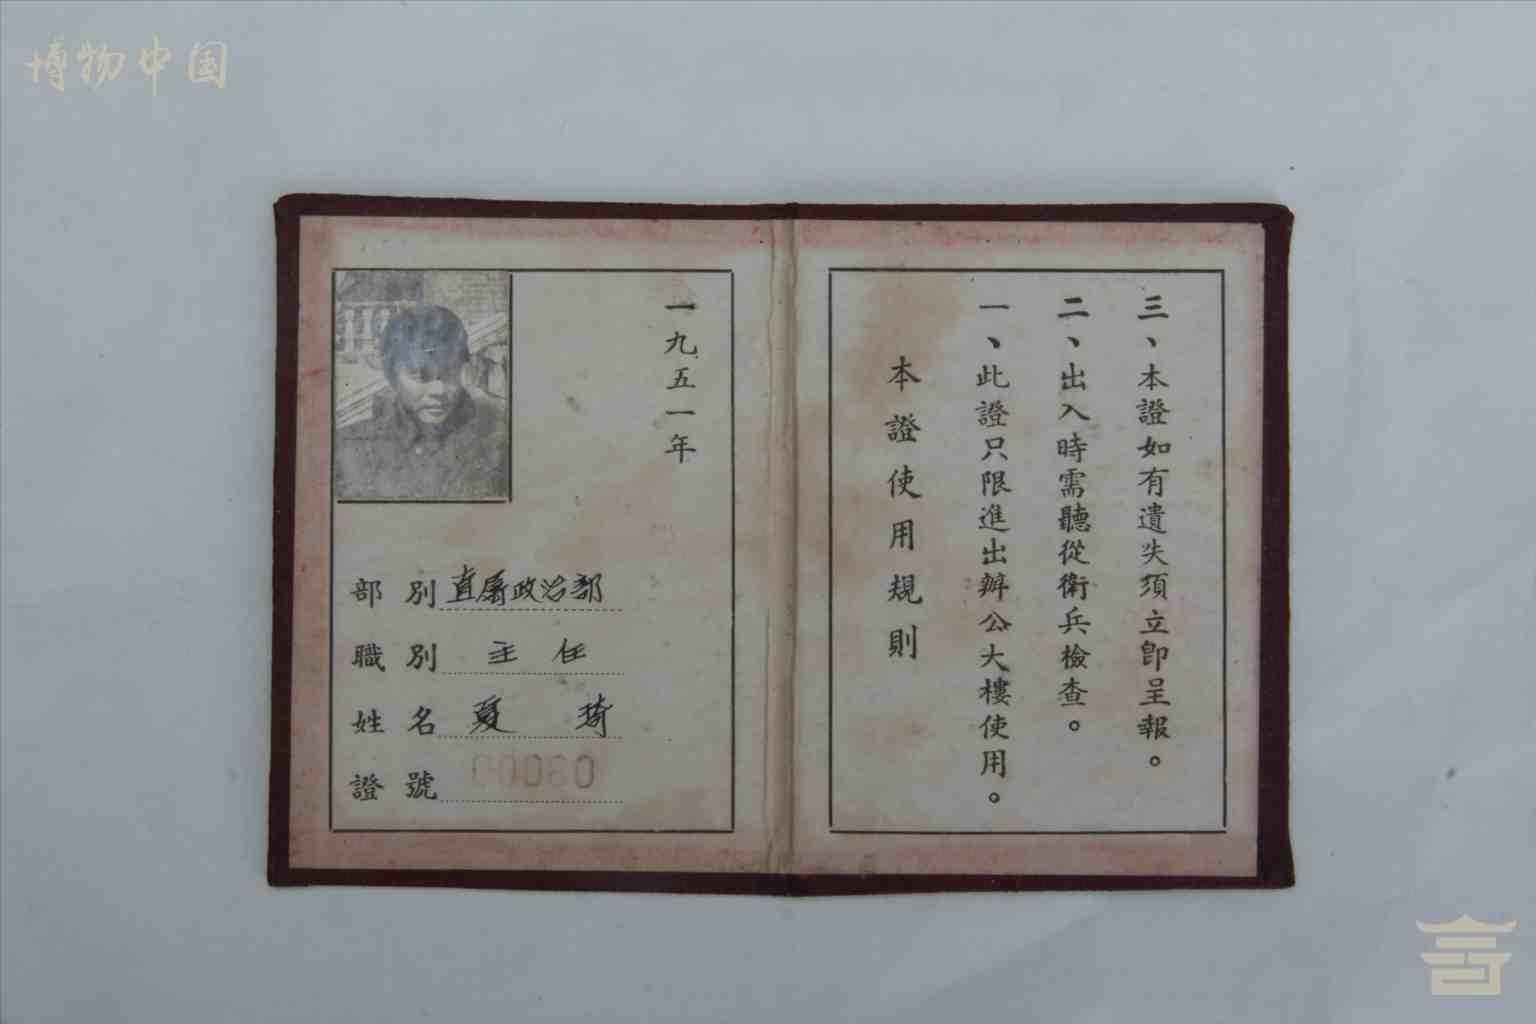 博物中国
一九五一年
部別 直屬政治部
職別 主任
姓名 夏琦
證號
本證使用規則
一、此證只限進出辦公大樓使用。
二、出入時需聽從衛兵檢查。
三、本證如有遺失須立卽呈報。